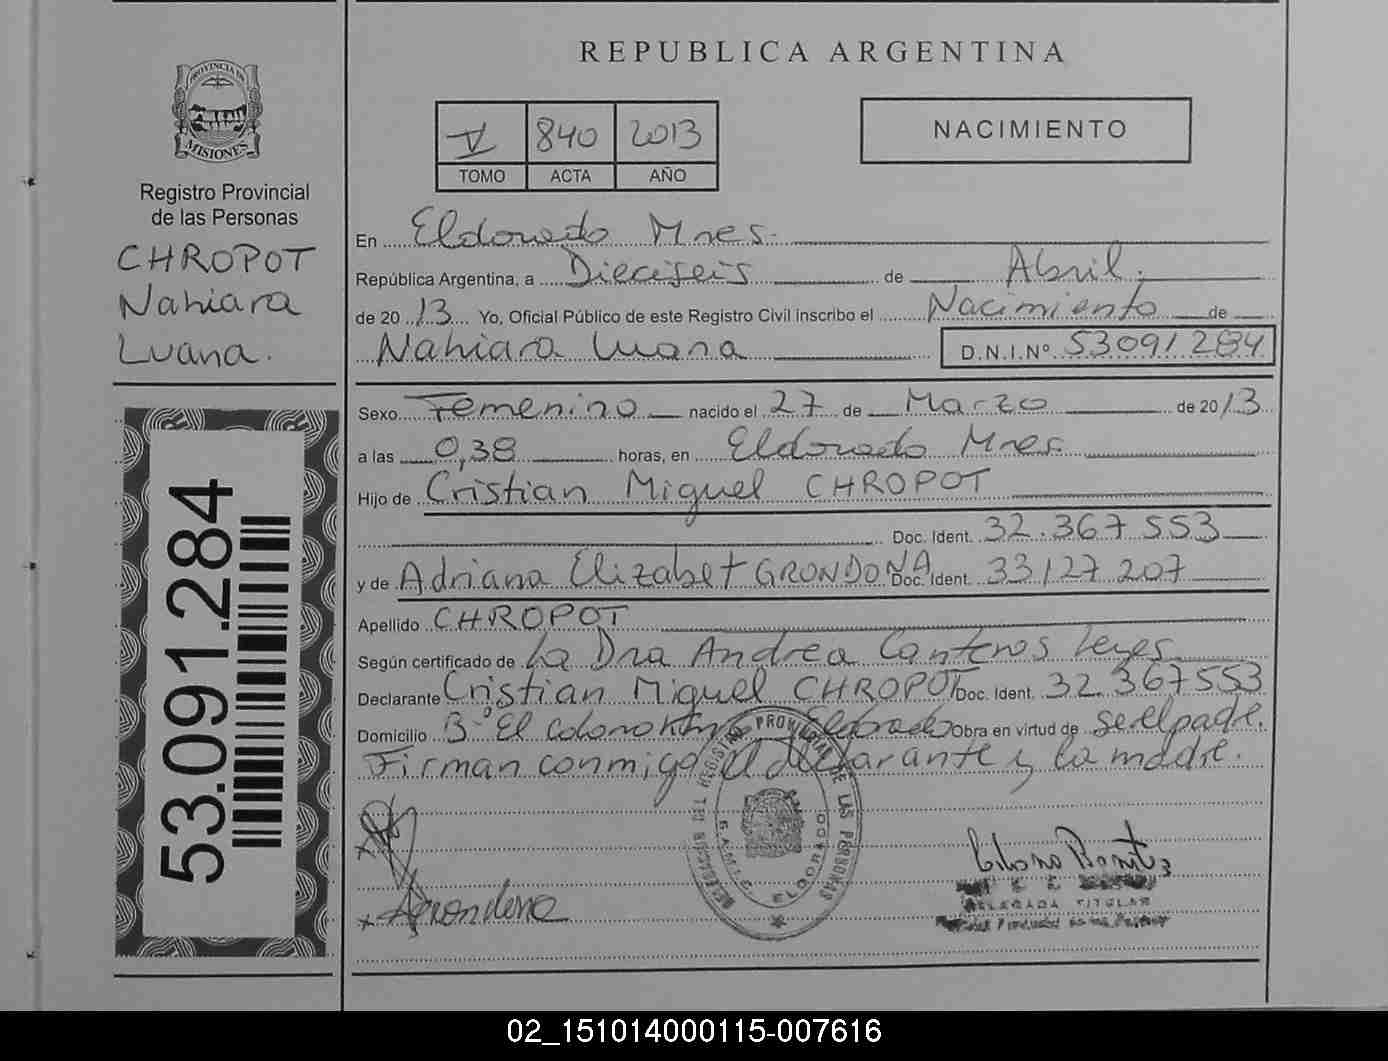 REPUBLICA ARGENTINA
PROVINCIA DE
MISIONES
Registro Provincial
de las Personas
CHROPOT
Nahiara
Luana.
53.091.284
V 840 2013
TOMO ACTA AÑO
NACIMIENTO
En Eldorado Mnes.
República Argentina, a Dieciseis de Abril.
de 2013 Yo, Oficial Público de este Registro Civil inscribo el Nacimiento de
Nahiara Luana D.N.I.Nº 53091284
Sexo Femenino nacido el 27 de Marzo de 2013
a las 0,38 horas, en Eldorado Mnes.
Hijo de Cristian Miguel CHROPOT
Doc. Ident. 32.367.553
y de Adriana Elizabet GRONDONA Doc. Ident. 33.127.207
Apellido CHROPOT
Según certificado de La Dra Andrea Canteros Leyes
Declarante Cristian Miguel CHROPOT Doc. Ident. 32.367553
Domicilio B.º El Colono Eldorado Obra en virtud de ser el padre.
Firman conmigo el declarante y la madre.
REGISTRO PROVINCIAL DE LAS PERSONAS
ELDORADO
Grondona
DELEGADA TITULAR
02_151014000115-007616